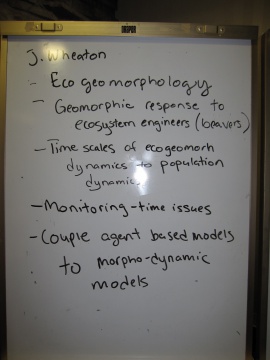 J. Wheaton
- Eco geomorphology
- Geomorphic response to
ecosystem engineers (beavers)
- Time scales of ecogeomorh
dynamics to population
dynamic
- Monitoring - time issues
- Couple agent based models
to morpho-dynamic
models